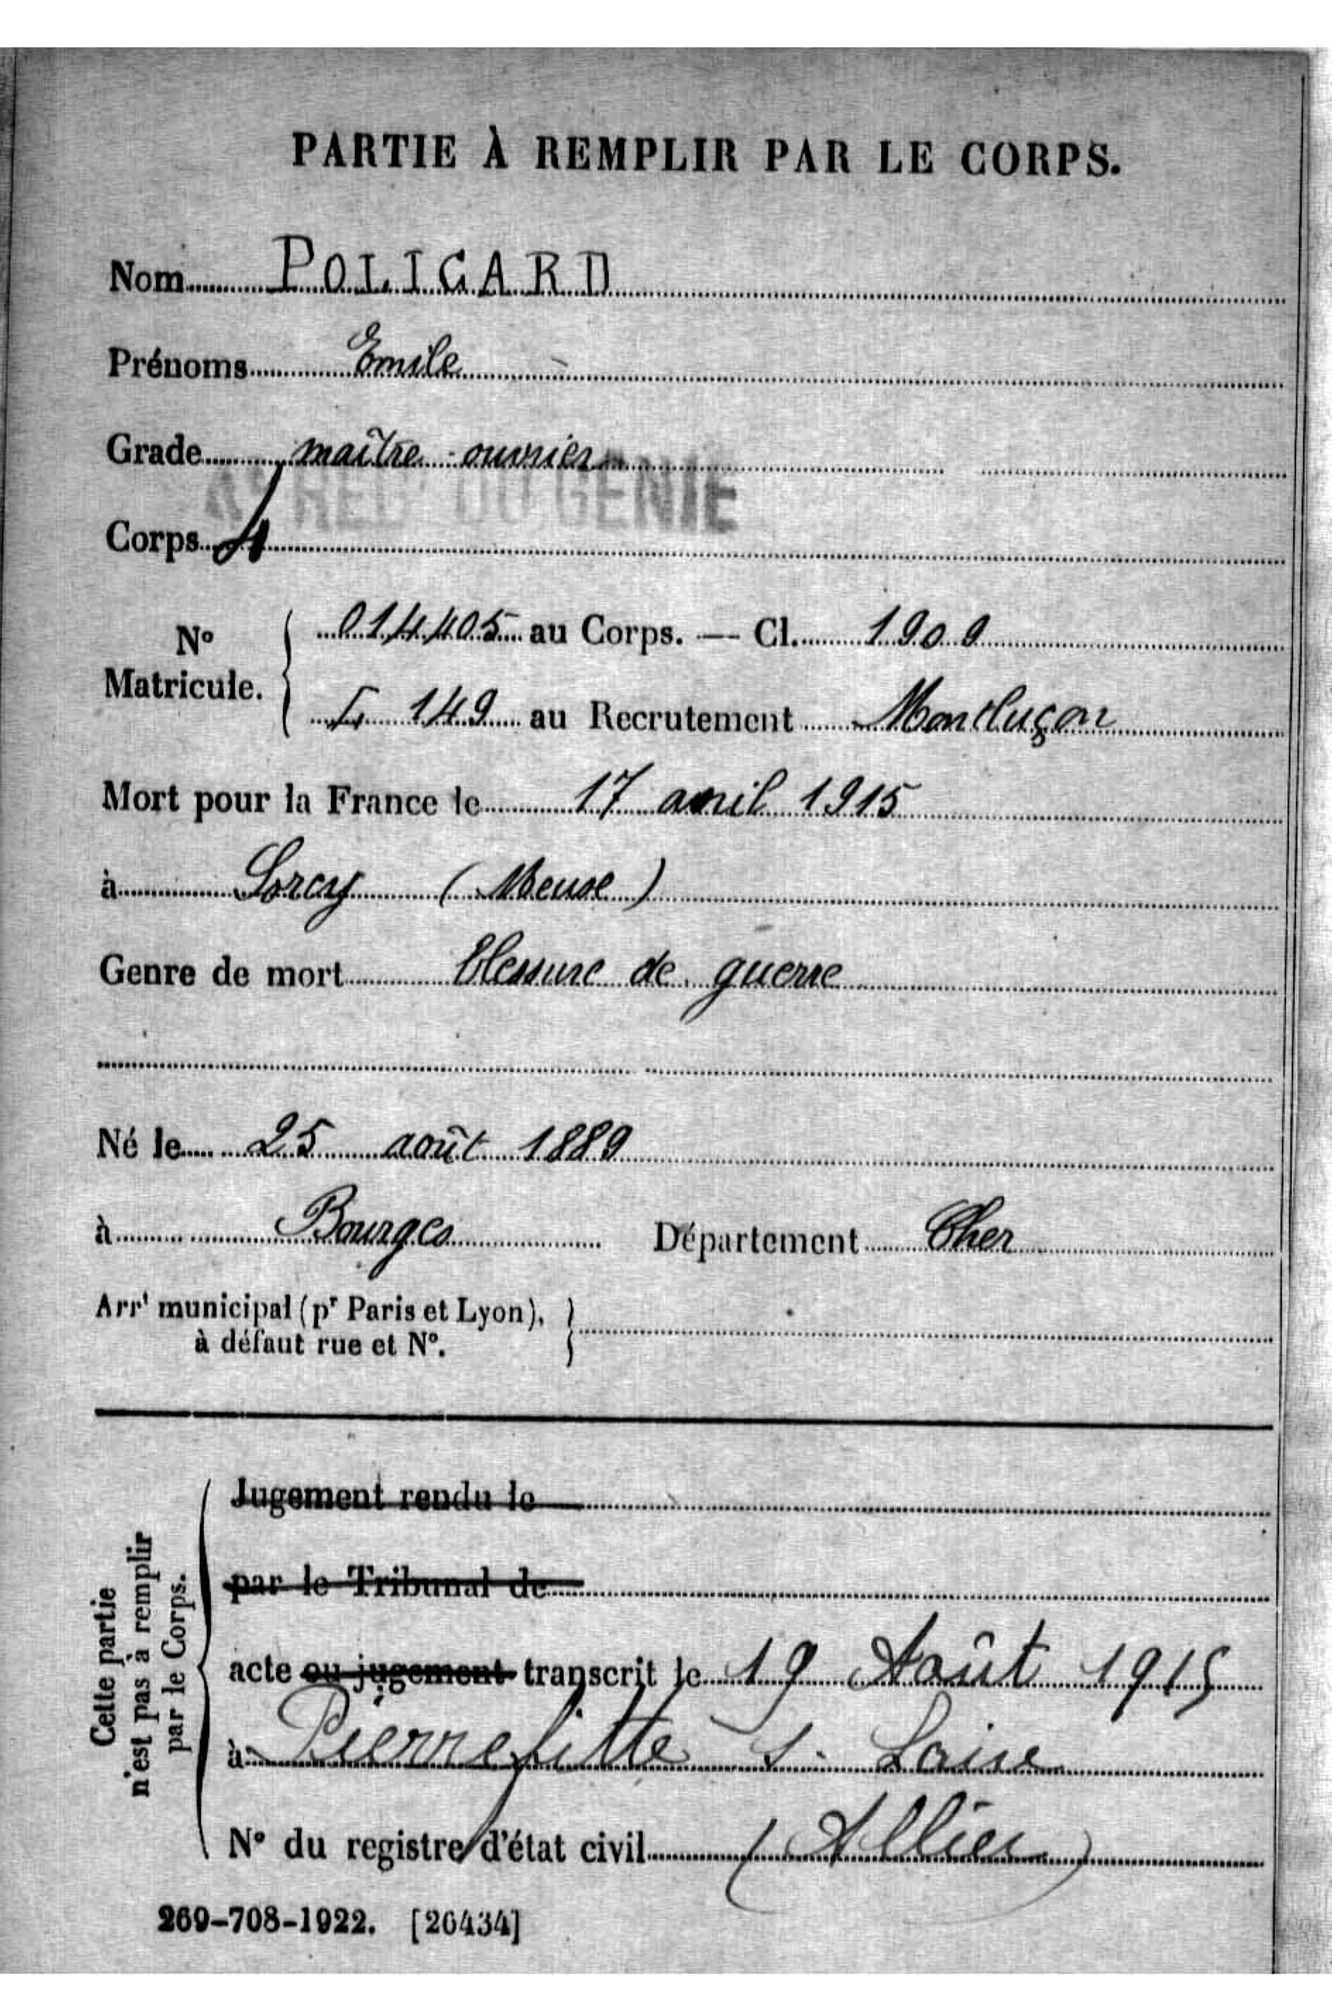 PARTIE À REMPLIR PAR LE CORPS.
Nom POLIGARD
Prénoms Emile
Grade maître ouvrier
RÉG DU GÉNIE
Corps 4
N° Matricule. 014405 au Corps. — Cl. 1909
L 149 au Recrutement Monluçon
Mort pour la France le 17 avril 1915
à Sorcy (Meuse)
Genre de mort blessure de guerre
Né le 25 août 1889
à Bourges Département Cher
Arrt municipal (pr Paris et Lyon),
à défaut rue et N°.
Cette partie
n'est pas à remplir
par le Corps.
Jugement rendu le
par le Tribunal de
acte ou jugement transcrit le 19 Août 1915
à Pierrefitte s. Loire
N° du registre d'état civil (Allier)
269-708-1922. [26434]